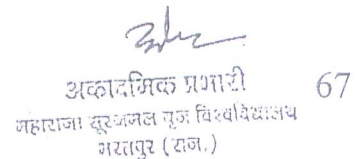 अकादमिक प्रभारी
67
महाराजा सूरजमल बृज विश्वविद्यालय
भरतपुर (राज.)